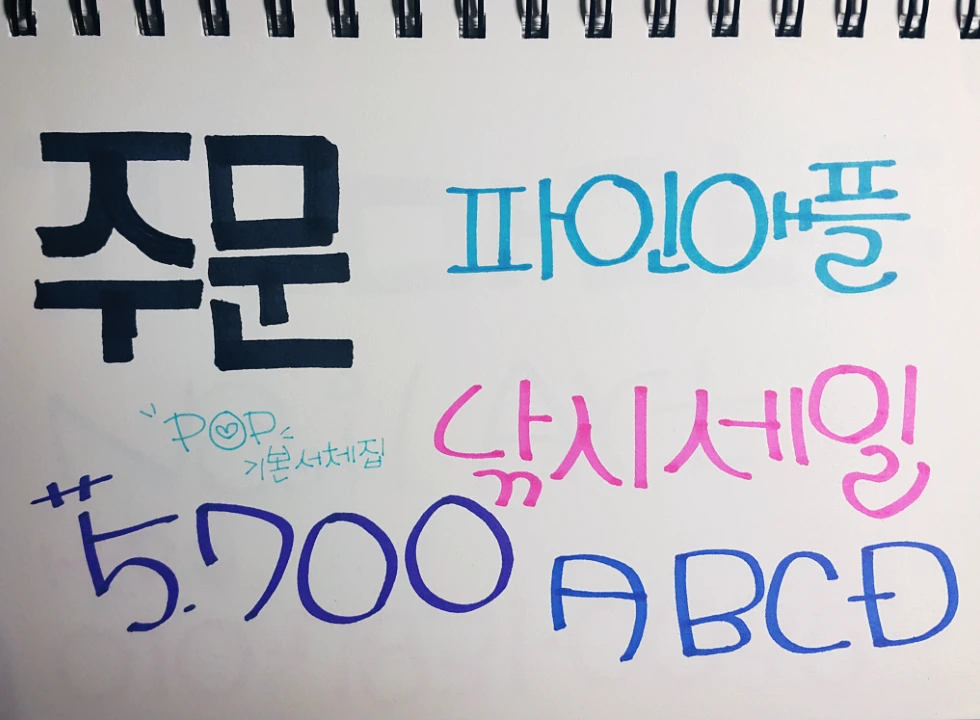 주문
파인애플
"POP"
기본서체집
낚시세일
5.700
ABCD